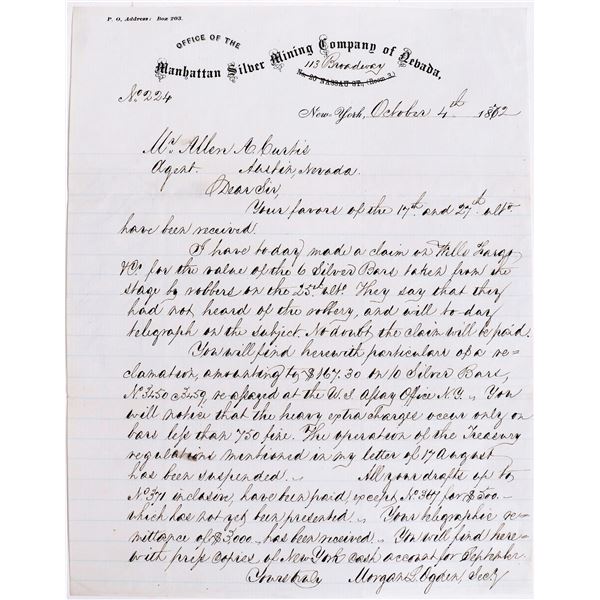 P. O. Address: Box 203.
OFFICE OF THE
Manhattan Silver Mining Company of Nevada,
113 Broadway
No. 20 NASSAU ST., (Room 3.)
No 224
New-York, October 4th 1872
Mr Allen A. Curtis
Agent. Austin, Nevada.
Dear Sir,
Your favors of the 17th and 27th ulto
have been received.
I have to day made a claim on Wells Fargo
&Co for the value of the 6 Silver Bars taken from the
stage by robbers on the 25th ulto. They say that they
had not heard of the robbery, and will to day
telegraph on the subject. No doubt the claim will be paid.
You will find herewith particulars of a re-
clamation, amounting to $167.30 on 10 Silver Bars,
No 3450 @ 3459, re assayed at the U.S. Assay Office N.Y. You
will notice that the heavy extra charges occur only on
bars less than 750 fine. The operation of the Treasury
regulations mentioned in my letter of 17 August
has been suspended. All your drafts up to
No 371 inclusive, have been paid, except No 367 for $500.—
which has not yet been presented. Your telegraphic re-
mittance of $3000 has been received. You will find here-
with press copies of New York cash account for September.
Yours truly Morgan L. Ogden, Secy